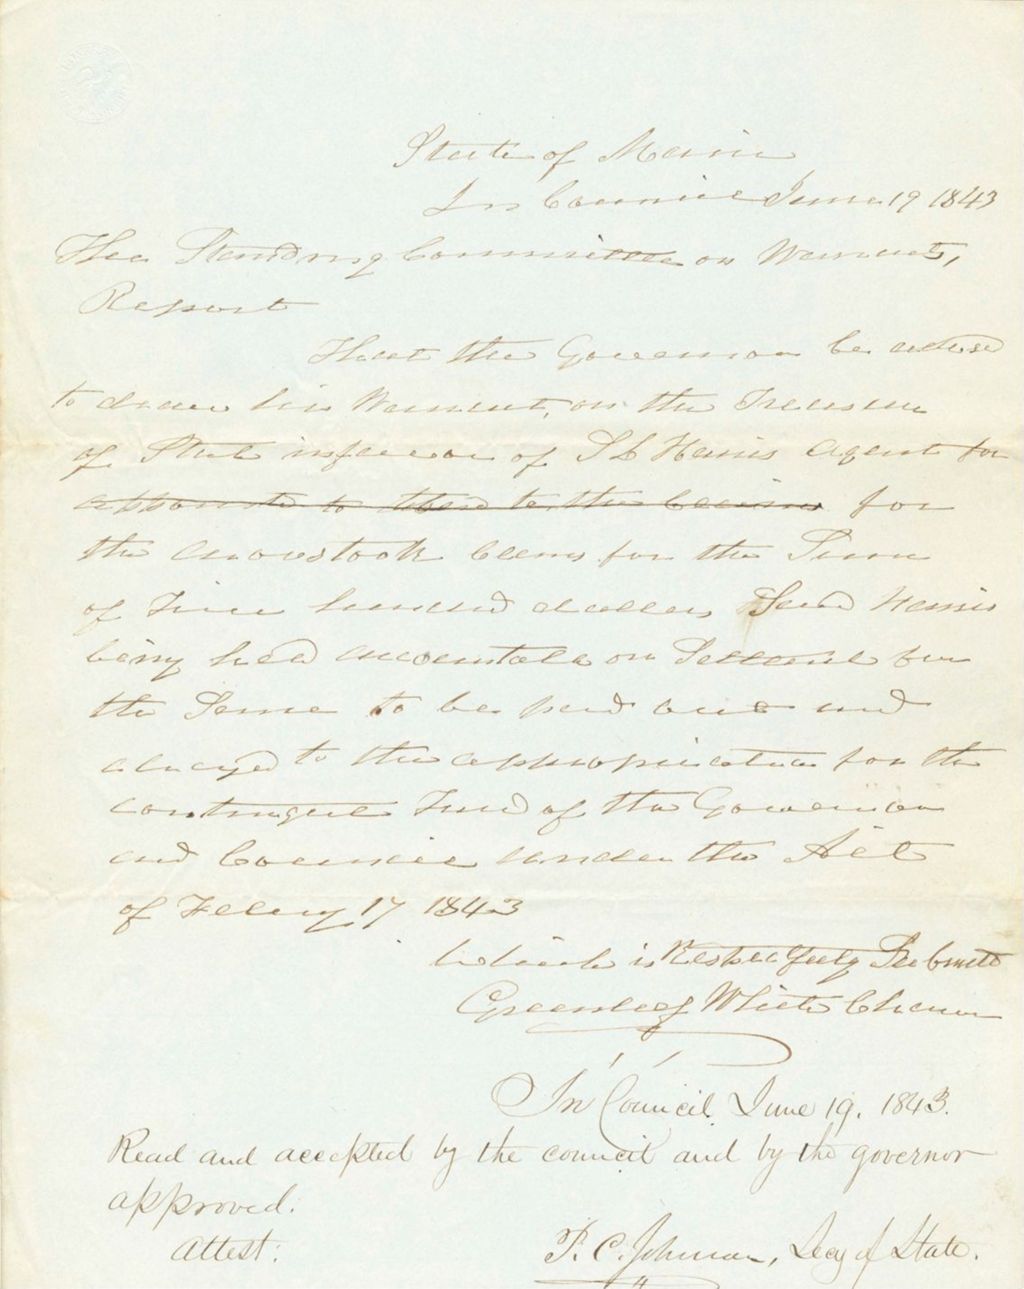 State of Maine
In Council June 19 1843
The Standing Committee on Warrants,
Report
That the Governor be advised
to draw his Warrant, on the Treasurer
of State in favor of S L Harris Agent for
appointed to the claims for
the Aroostook claims for the Sum
of Five hundred dollars, Said Harris
being held accountable on for
the Same to be paid out and
charged to the appropriation for the
contingent Fund of the Governor
and Council under the Act
of Feby 17 1843
Which is Respectfully Submitted
Greenleaf White Chairman
In Council, June 19. 1843.
Read and accepted by the council and by the governor
approved.
Attest:
P. C. Johnson, Secy of State.